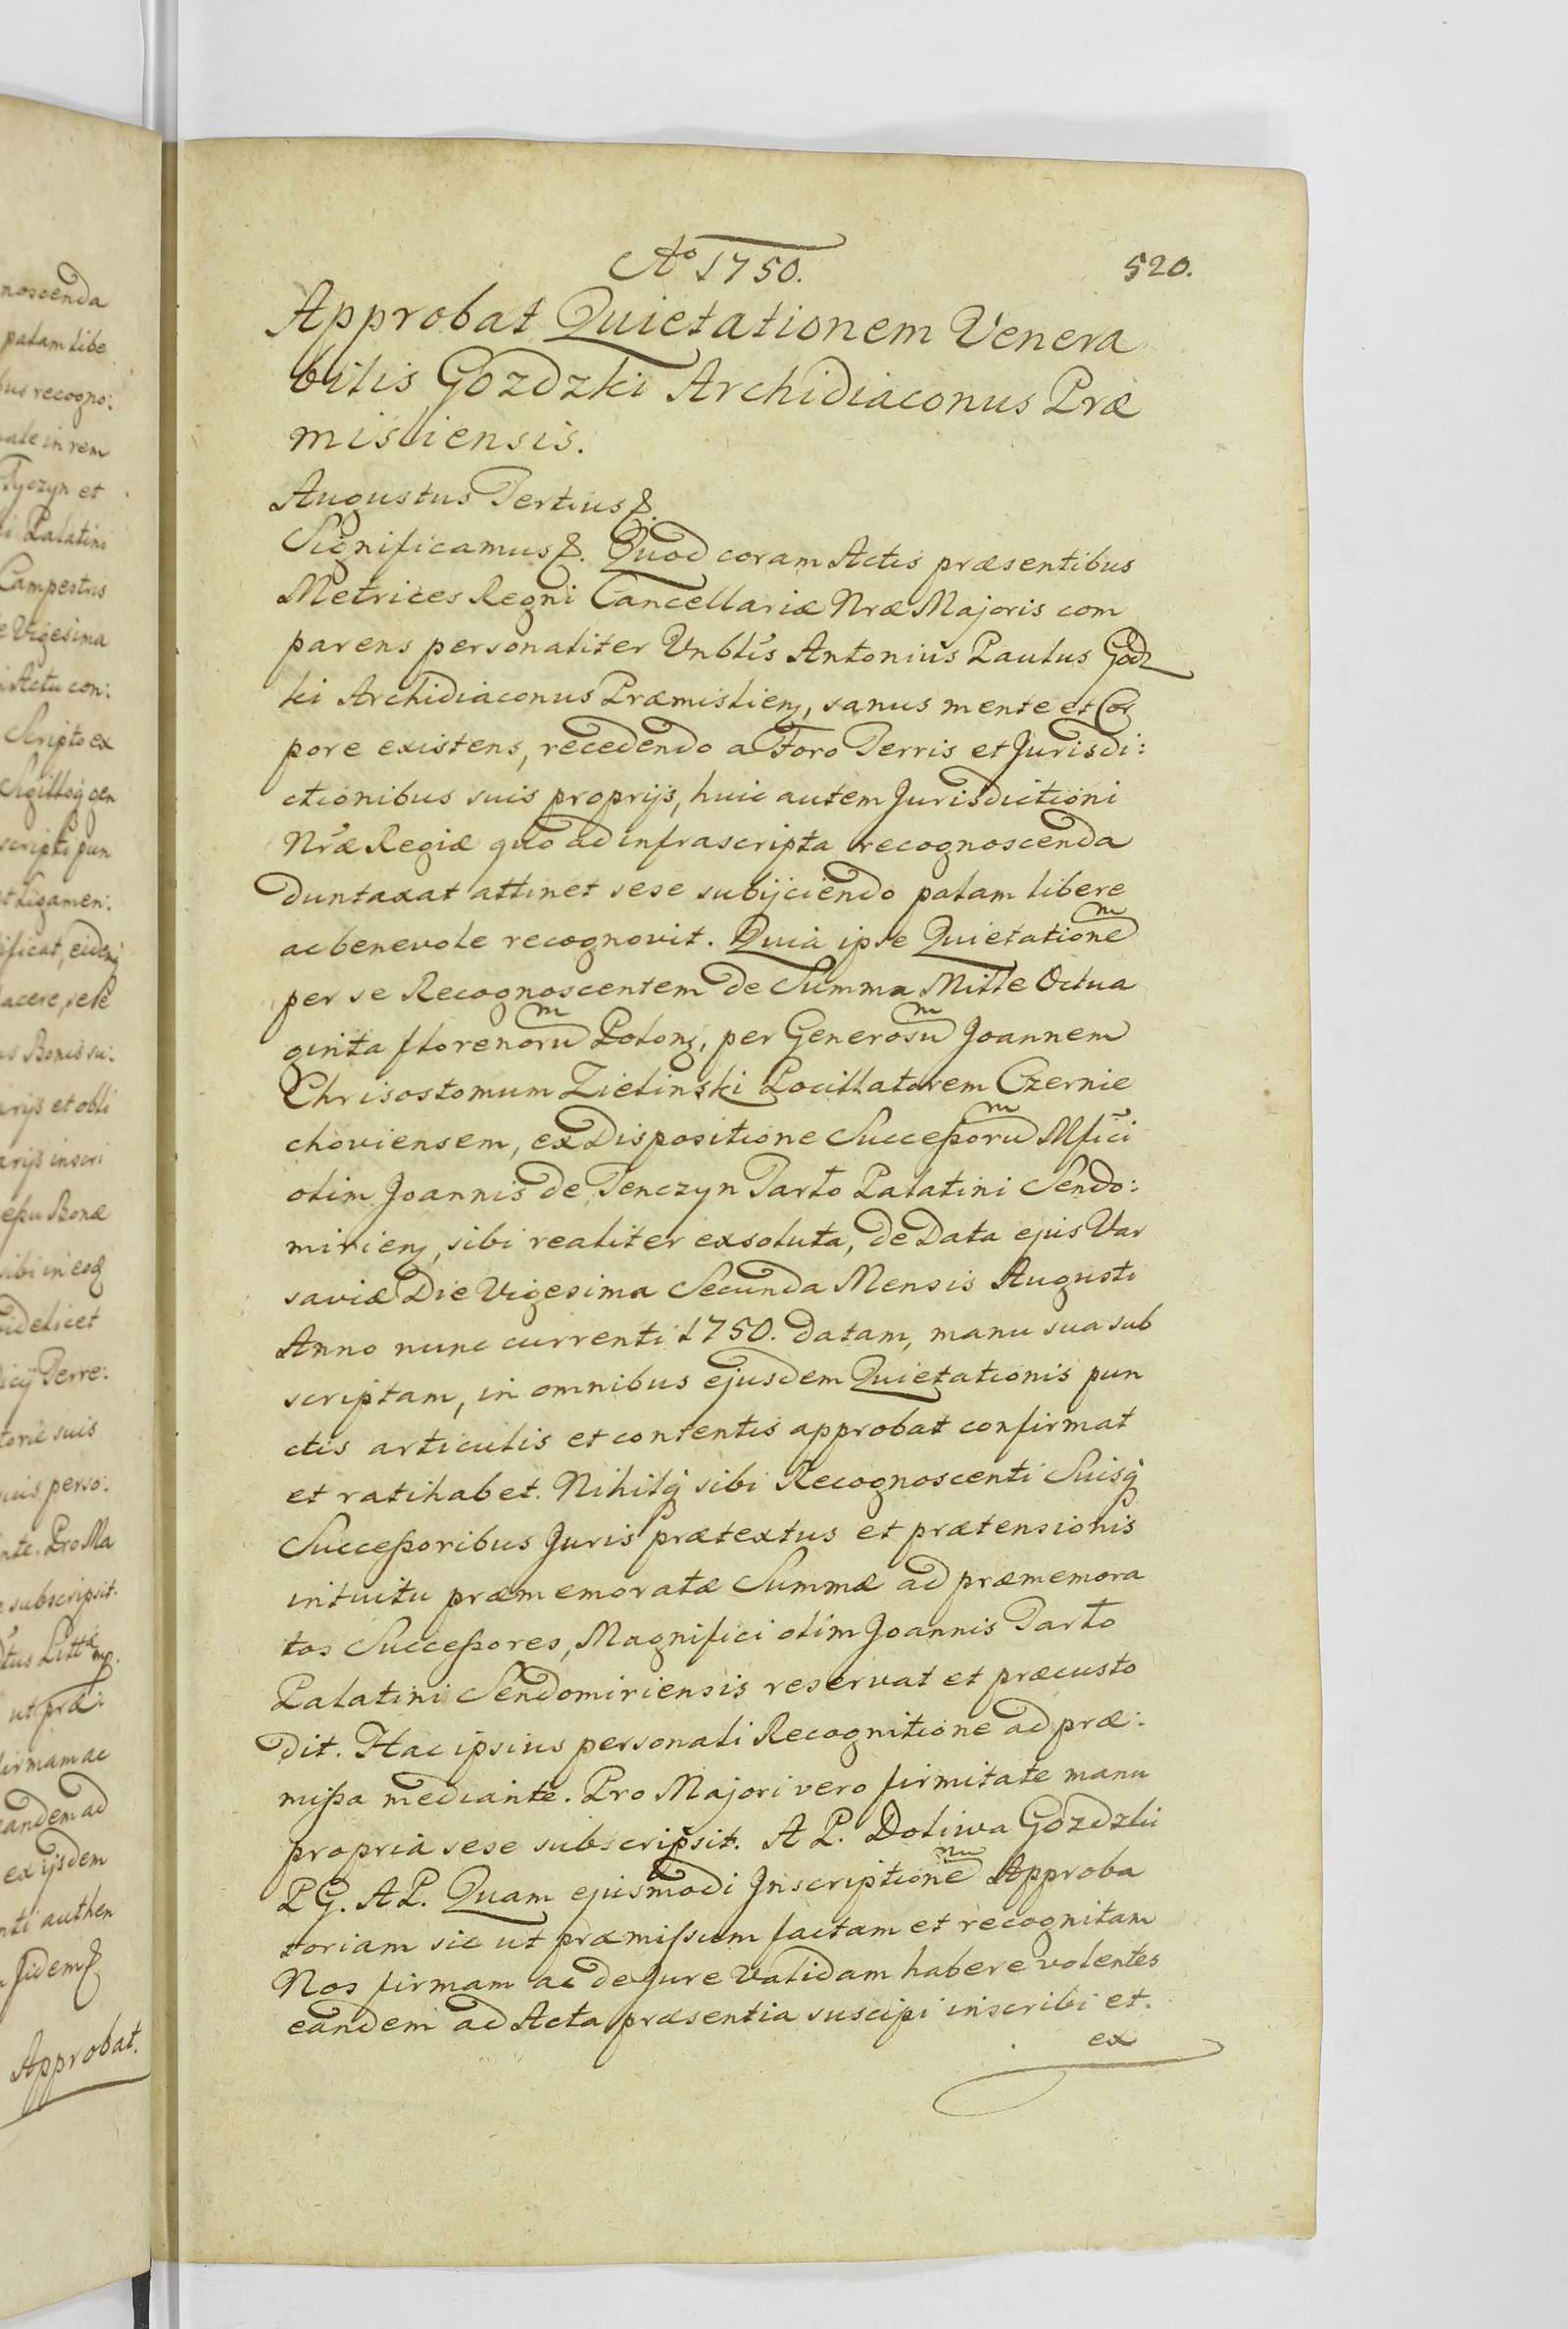 noscenda
palam libe
bus recogno:
vale in rem
Tyczyn et
ci Palatini
Campestris
e Vigesima
Actu con:
Scripto ex
scripti pun
et Ligamen:
ificat,
acere, sese
us Bonis su:
arijs et obli
arijs inscri
Bonæ
sibi in eoq
videlicet
icij Terre:
torie suis
uis perso:
nte. Pro Ma
e subscripsit.
ut præ:
firmam ac
eandem ad
ex ijsdem
nti authen
fidem &
Approbat.
Aº 1750.
520.
Approbat Quietationem Venera
bilis Gozdzki Archidiaconus Præ
misliensis.
Augustus Tertius &.
Significamus &. Quod coram Actis præsentibus
Metrices Regni Cancellariæ Nræ Majoris com
parens personaliter Vnblis Antonius Paulus Godz
ki Archidiaconus Præmislien, sanus mente et Cor
pore existens, recedendo a Foro Terris et Jurisdi:
ctionibus suis proprijs, huic autem Jurisdictioni
Nræ Regiæ quo ad infrascripta recognoscenda
duntaxat attinet sese subijciendo palam libere
ac benevole recognovit. Quia ipse Quietationem
per se Recognoscentem de Summa Mille Octua
ginta florenorum Polon, per Generosum Joannem
Chrisostomum Zielinski Pocillatorem Czernie
choviensem, ex Dispositione Successorum Mfici
olim Joannis de Tenczyn Tarło Palatini Sendo:
mirien, sibi realiter exsoluta, de Data ejus Var
saviæ Die Vigesima Secunda Mensis Augusti
Anno nunc currenti 1750. datam, manu sua sub
scriptam, in omnibus ejusdem Quietationis pun
ctis articulis et contentis approbat confirmat
et ratihabet. Nihilq sibi Recognoscenti Suisq
Successoribus Juris prætextus et prætensionis
intuitu præmemoratæ Summæ ad præmemora
tos Successores, Magnifici olim Joannis Tarło
Palatini Sendomiriensis reservat et præcusto
dit. Hac ipsius personali Recognitione ad præ:
missa mediante. Pro Majori vero firmitate manu
propria sese subscripsit. A P. Doliwa Gozdzki
P G. A P. Quam ejusmodi Inscriptionem Approba
toriam sic ut præmissum factam et recognitam
Nos firmam ac de Jure validam habere volentes
eandem ad Acta præsentia suscipi inscribi et.
ex